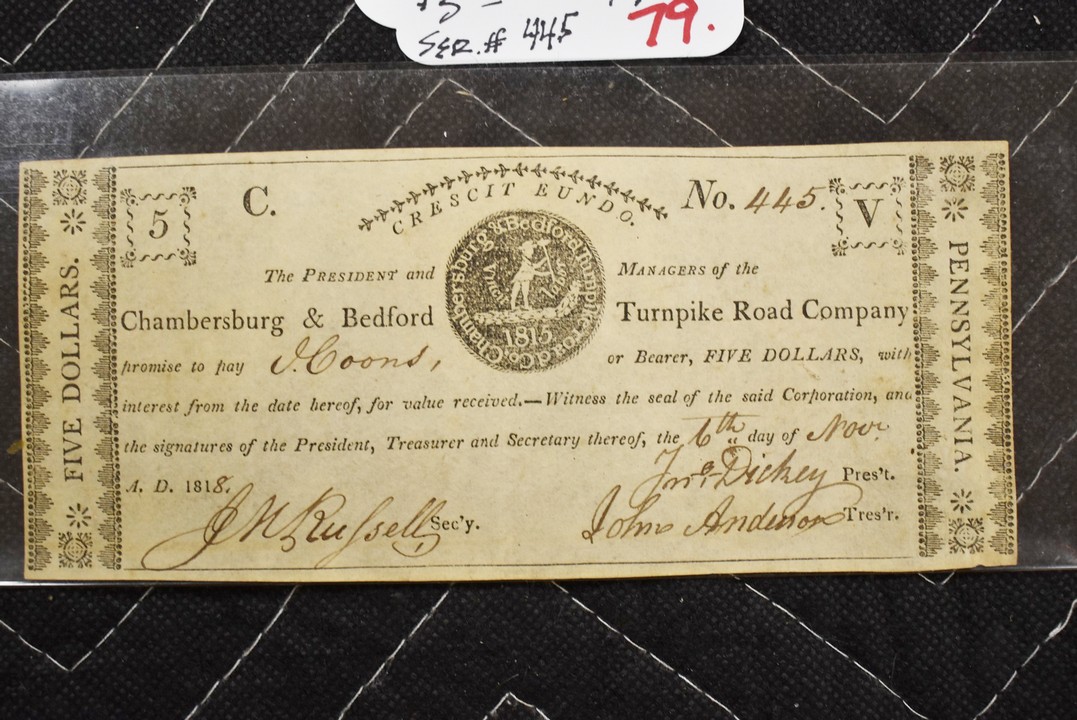 SER.# 445
79.
5
C.
CRESCIT EUNDO.
No. 445.
V
FIVE DOLLARS.
PENNSYLVANIA.
The PRESIDENT and
MANAGERS of the
Chambersburg & Bedford
Turnpike Road Company
1815
promise to pay J. Coons, or Bearer, FIVE DOLLARS, with
interest from the date hereof, for value received.—Witness the seal of the said Corporation, and
the signatures of the President, Treasurer and Secretary thereof, the 6th day of Novr.
A. D. 1818.
Dickey Pres't.
J N Russell Sec'y.
John Anderson Tres'r.